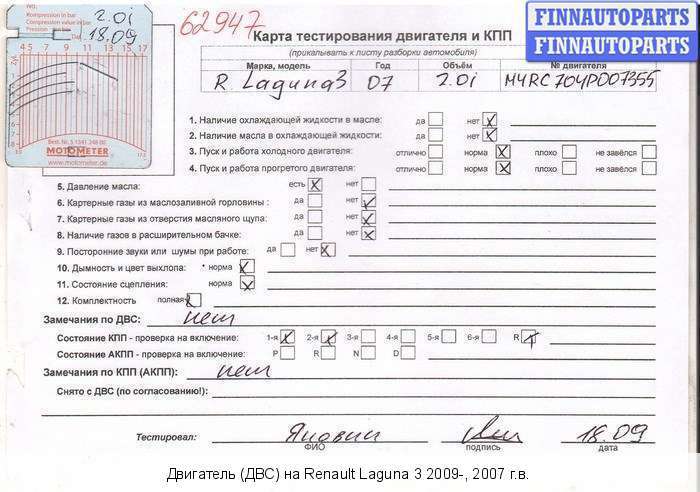 NU:
Kompression in bar
Compression value in bar
Pression
2.0i
18.09
4 5 7 9 11 13 15 17
Best. Nr. 5 1341 246 00
MOTOMETER
www.motometer.de
62947
FINNAUTOPARTS
FINNAUTOPARTS
Карта тестирования двигателя и КПП
(прикалывать к листу разборки автомобиля)
Марка, модель Год Объём № двигателя
R. Laguna3 07 2.0i M4RC704P007355
1. Наличие охлаждающей жидкости в масле: да нет
2. Наличие масла в охлаждающей жидкости: да нет
3. Пуск и работа холодного двигателя: отлично норма плохо не завёлся
4. Пуск и работа прогретого двигателя: отлично норма плохо не завёлся
5. Давление масла: есть нет
6. Картерные газы из маслозаливной горловины : да нет
7. Картерные газы из отверстия масляного щупа: да нет
8. Наличие газов в расширительном бачке: да нет
9. Посторонние звуки или шумы при работе: да нет
10. Дымность и цвет выхлопа: норма
11. Состояние сцепления: норма
12. Комплектность полная
Замечания по ДВС: нет
Состояние КПП - проверка на включение: 1-я 2-я 3-я 4-я 5-я 6-я R
Состояние АКПП - проверка на включение: P R N D
Замечания по КПП (АКПП): нет
Снято с ДВС (по согласованию!):
Тестировал: 18.09
ФИО подпись дата
Двигатель (ДВС) на Renault Laguna 3 2009-, 2007 г.в.